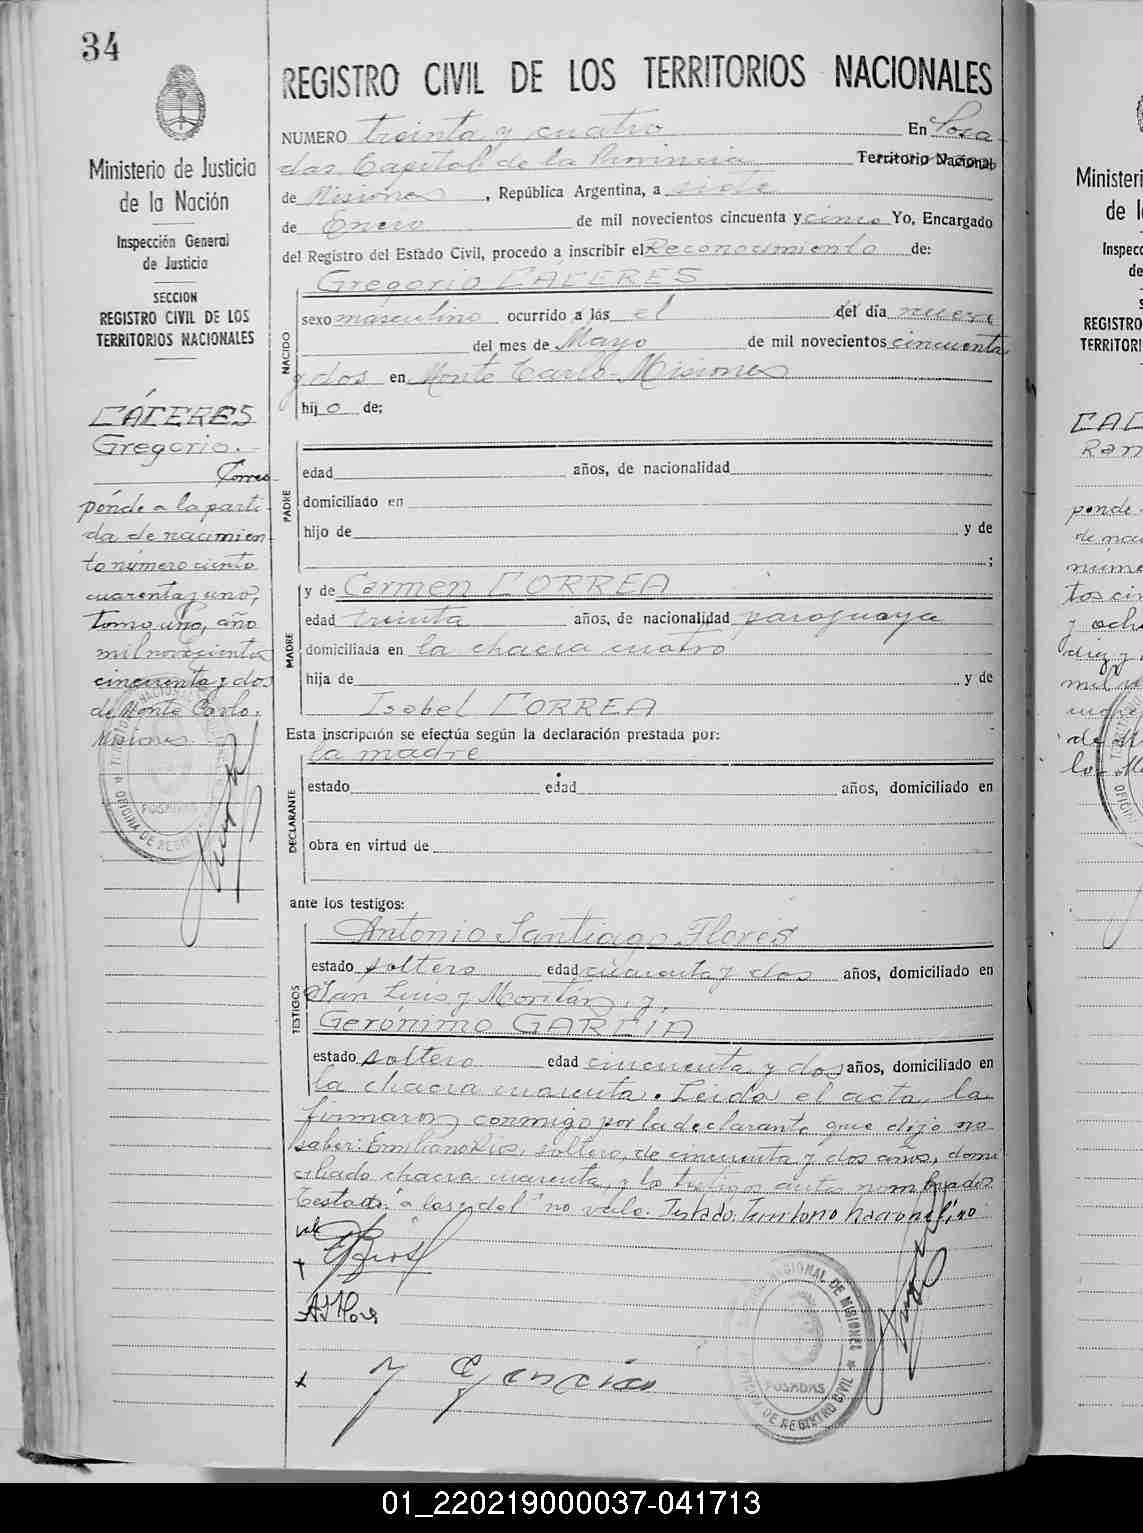 34
REGISTRO CIVIL DE LOS TERRITORIOS NACIONALES
NUMERO treinta y cuatro En Posa
das Capital de la Provincia Territorio Nacional
de Misiones, República Argentina, a siete
de Enero de mil novecientos cincuenta y cinco Yo, Encargado
del Registro del Estado Civil, procedo a inscribir el Reconocimiento de:
Gregorio CÁCERES
NACIDO
sexo masculino ocurrido a las el del día nueve
del mes de Mayo de mil novecientos cincuenta
y dos en Monte Carlo Misiones
hijo de;
PADRE
edad años, de nacionalidad
domiciliado en
hijo de y de
;
MADRE
y de Carmen CORREA
edad treinta años, de nacionalidad paraguaya
domiciliada en la chacra cuatro
hija de y de
Isabel CORREA
Esta inscripción se efectúa según la declaración prestada por:
la madre
DECLARANTE
estado edad años, domiciliado en
obra en virtud de
ante los testigos:
TESTIGOS
Antonio Santiago Flores
estado soltero edad cuarenta y dos años, domiciliado en
San Luis y Moritán, y
Gerónimo GARCIA
estado soltero edad cincuenta y dos años, domiciliado en
la chacra cuarenta. Leida el acta, la
firmaron conmigo por la declarante que dijo no
saber: Emiliano Rios, soltero, de cincuenta y dos años, domi
ciliado chacra cuarenta, y los testigos antes nombrados
Testado: "a las y del" no vale. Testado: Territorio Nacional, no
vale
E Rios
A S Flores
Y Garcia
Ministerio de Justicia
de la Nación
Inspección General
de Justicia
SECCION
REGISTRO CIVIL DE LOS
TERRITORIOS NACIONALES
CÁCERES
Gregorio.
Corres
ponde a la parti
da de nacimien
to número ciento
cuarenta y uno,
tomo uno, año
mil novecientos
cincuenta y dos
de Monte Carlo.
Misiones.
POSADAS
OFICINA DE REGISTRO CIVIL
POSADAS
Ministeri
de l
Inspecc
de
S
REGISTRO
TERRITORI
CAC
Ram
ponde
de nac
núme
tos cin
y ocho
01_220219000037-041713